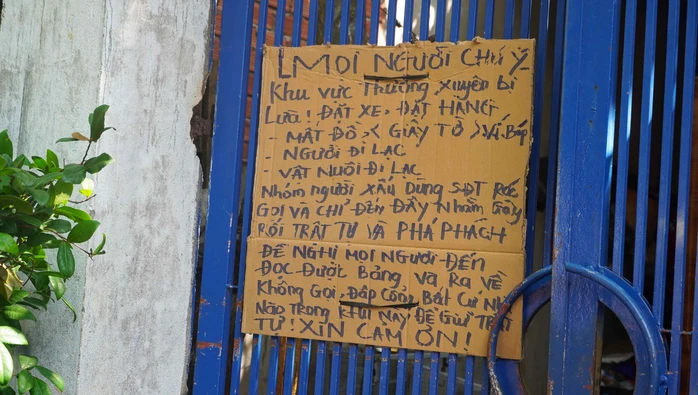 MỌI NGƯỜI CHÚ Ý
Khu vực Thường xuyên bị
Lừa! ĐẶT XE, ĐẶT HÀNG
- MẤT ĐỒ, < GIẤY TỜ > Ví Bóp
- NGƯỜI ĐI LẠC
VẬT NUÔI ĐI LẠC
Nhóm người XẤU DÙNG SĐT Rác
GỌI VÀ CHỈ ĐẾN ĐÂY Nhằm Gây
RỐI TRẬT TỰ VÀ PHÁ PHÁCH
ĐỀ NGHỊ MỌI NGƯỜI ĐẾN
ĐỌC ĐƯỢC BẢNG VÀ Ra VỀ
Không Gọi, Đập Cổng Bất Cứ Nhà
Nào Trong Khu NÀY ĐỂ Giữ TRẬT
TỰ! XIN CẢM ƠN!